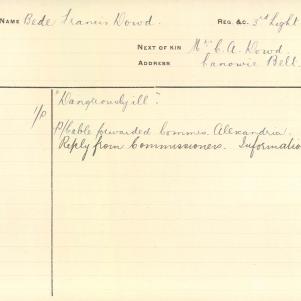 NAME Bede Francis Dowd. REG. &C. 3rd Light
NEXT OF KIN Mrs C. A. Dowd
ADDRESS Canowie Belt.
"Dangerously ill".
1/p P/Cable forwarded Commrs. Alexandria.
Reply from Commissioners. Information